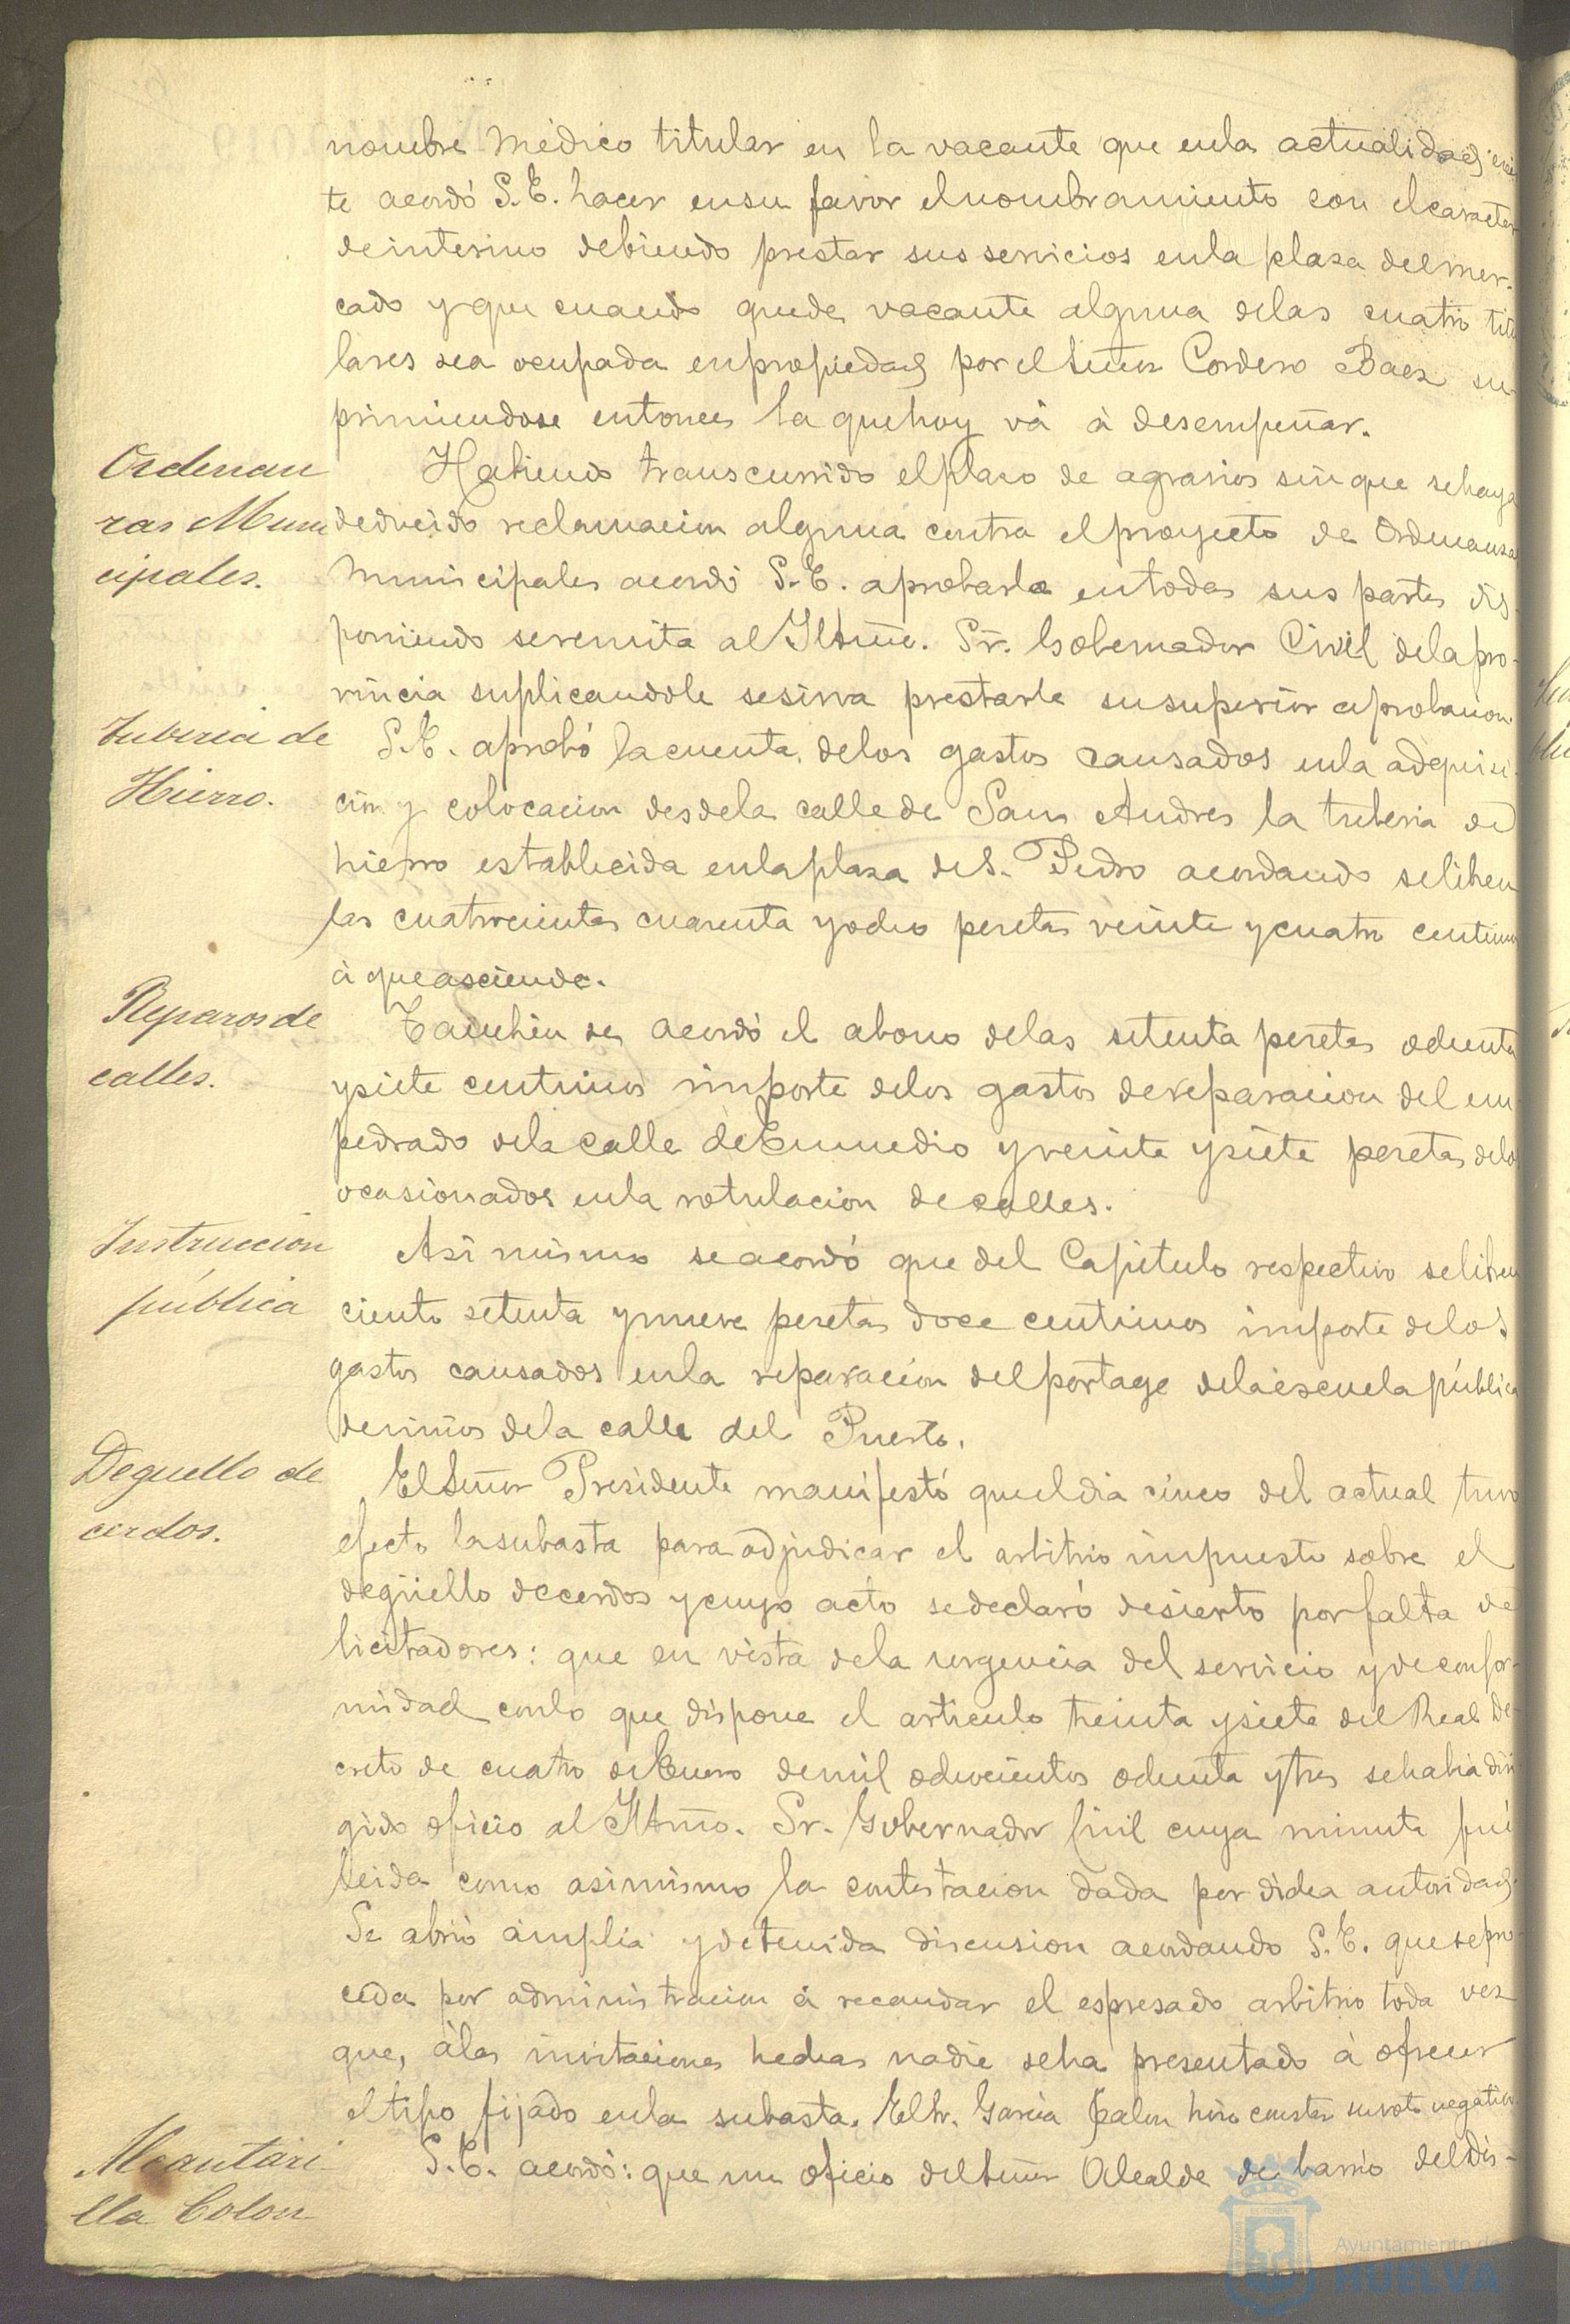 nombre Médico titular en la vacante que en la actualidad exis
te acordó S.E. hacer en su favor el nombramiento con el caracter
de interino debiendo prestar sus servicios en la plaza del mer-
cado y que cuando quede vacante alguna de las cuatro titu
lares sea ocupada en propiedad por el Señor Cordero Baez su-
primiendose entonces la que hoy vá á desempeñar.
Ordenan
zas Muni
cipales.
Habiendo transcurrido el plazo de agravios sin que se haya
deducido reclamacion alguna contra el proyecto de Ordenanzas
Municipales acordó S.E. aprobarla en todas sus partes dis-
poniendo se remita al Iltmo. Sr. Gobernador Civil de la pro-
vincia suplicandole se sirva prestarle su superior aprobacion.
Tuberia de
Hierro.
S.E. aprobó la cuenta de los gastos causados en la adquisi-
cion y colocacion desde la calle de San Andres la tuberia de
hierro establecida en la plaza de S. Pedro acordando se libren
las cuatrocientas cuarenta y ocho pesetas veinte y cuatro centimos
á que asciende.
Reparos de
calles.
Tambien se acordó el abono de las setenta pesetas ochenta
y siete centimos importe de los gastos de reparacion del em-
pedrado de la calle de Enmedio y veinte y siete pesetas de los
ocasionados en la rotulacion de calles.
Instruccion
pública
Asi mismo se acordó que del Capitulo respectivo se libren
ciento setenta y nueve pesetas doce centimos importe de los
gastos causados en la reparacion del portage de la escuela pública
de niños de la calle del Puerto.
Deguello de
cerdos.
El Señor Presidente manifestó que el dia cinco del actual tuvo
efecto la subasta para adjudicar el arbitrio impuesto sobre el
degüello de cerdos y cuyo acto se declaró desierto por falta de
licitadores: que en vista de la urgencia del servicio y de confor-
midad con lo que dispone el articulo treinta y siete del Real De-
creto de cuatro de Enero de mil ochocientos ochenta y tres se habia diri
gido oficio al Iltmo. Sr. Gobernador Civil cuya minuta fué
leida como asimismo la contestacion dada por dicha autoridad.
Se abrió amplia y detenida discusion acordando S.E. que se pro-
ceda por administracion á recaudar el espresado arbitrio toda vez
que, á las invitaciones hechas nadie se ha presentado á ofrecer
el tipo fijado en la subasta. El Sr. Garcia hizo constar su voto negativo.
Alcantari-
lla Colon
S.E. acordó: que un oficio del Señor Alcalde de barrio del dis-
Ayuntamiento de
HUELVA